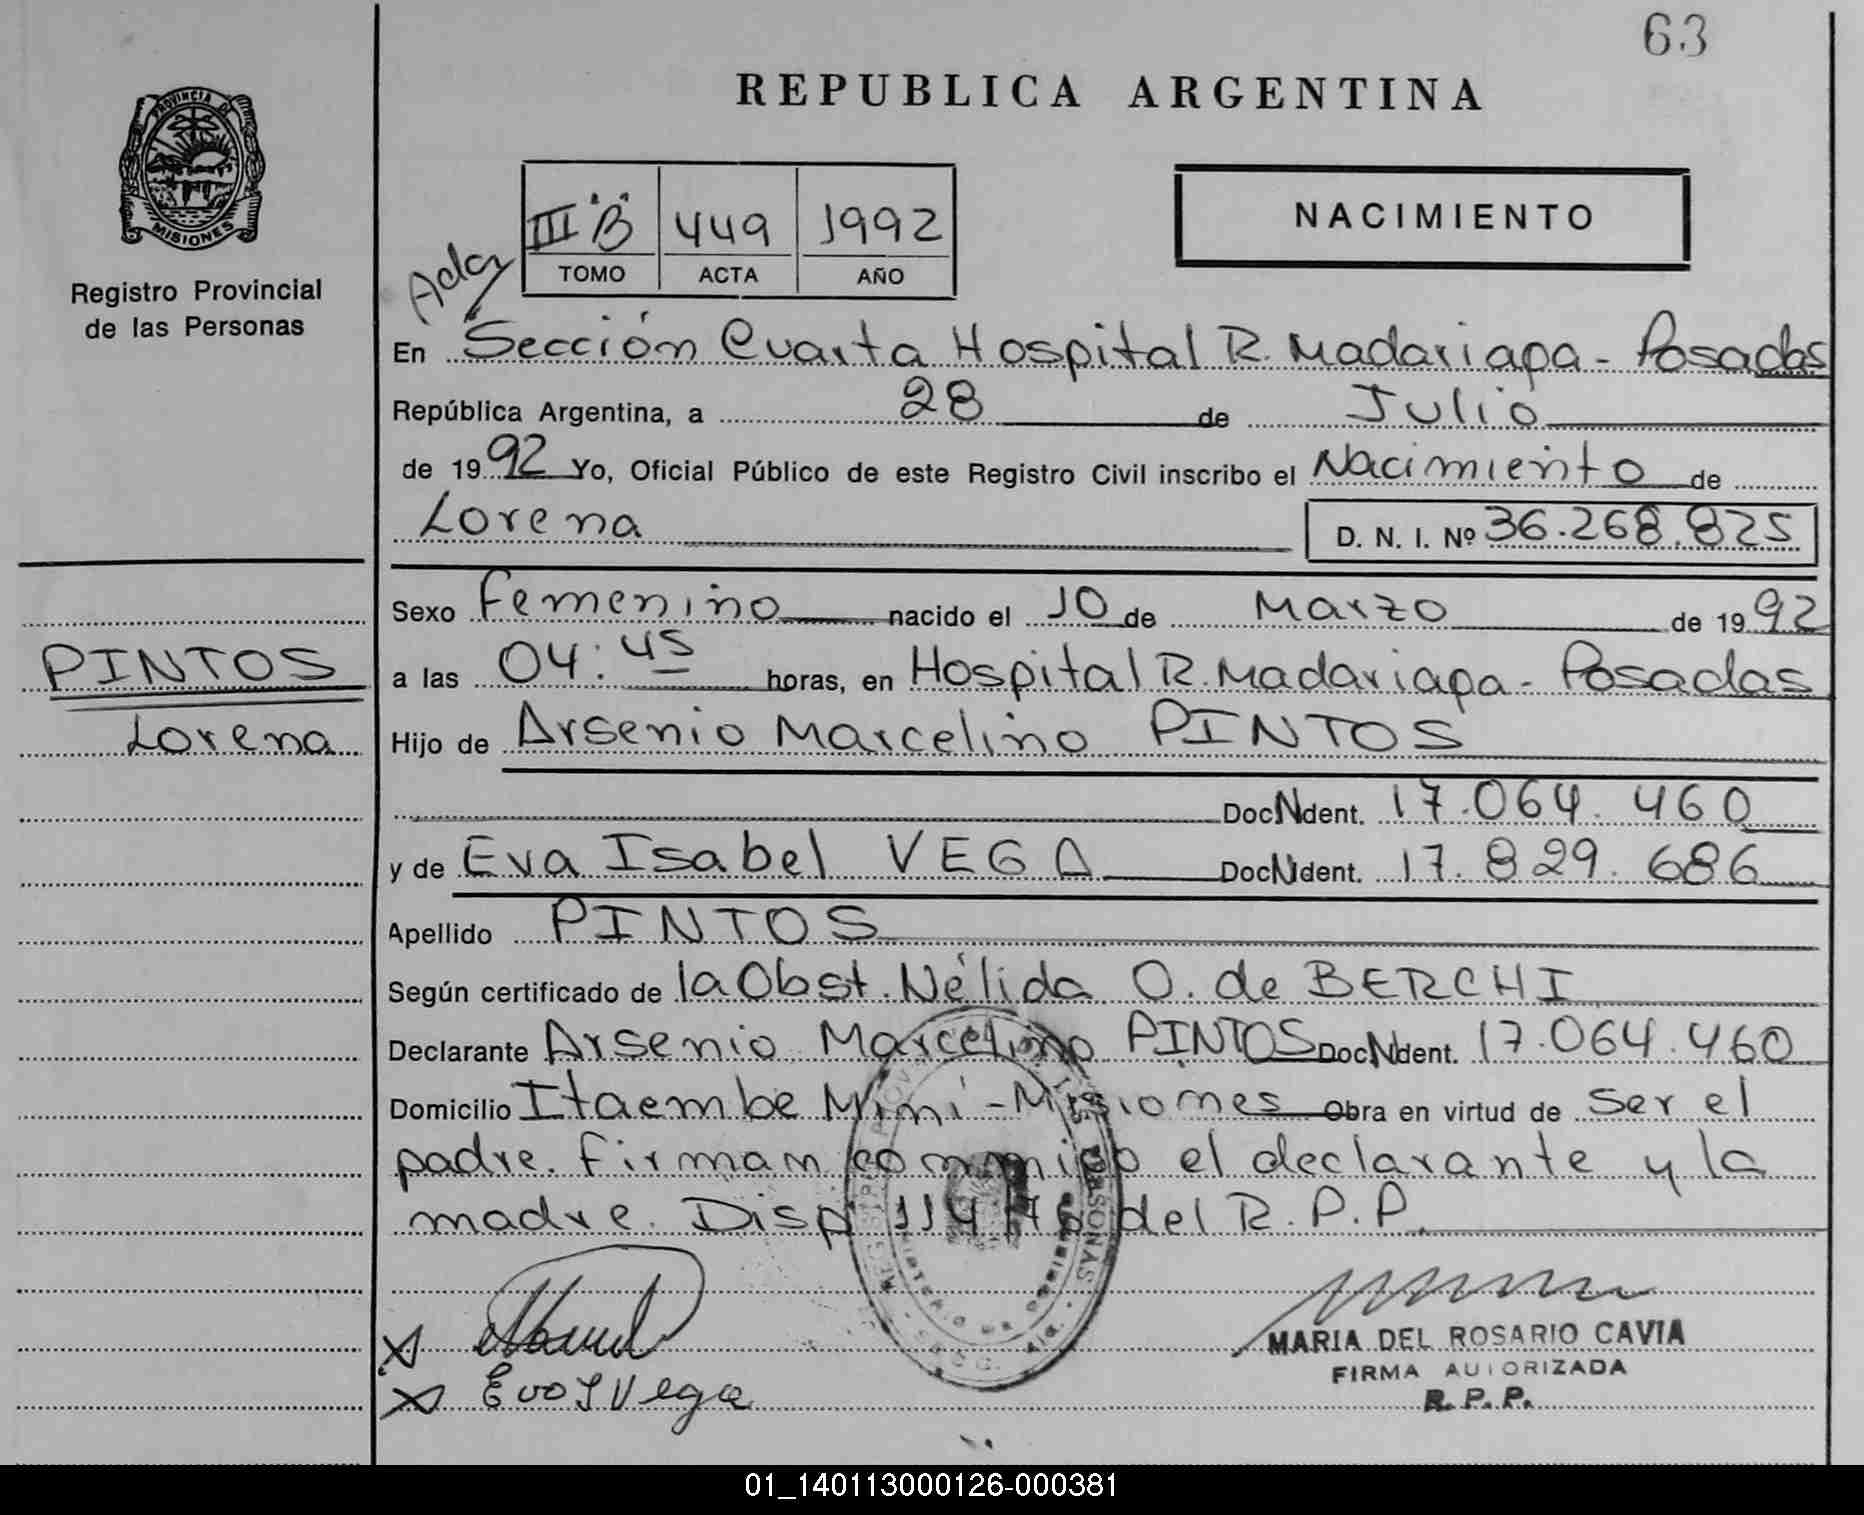 63
REPUBLICA ARGENTINA
PROVINCIA DE
MISIONES
Registro Provincial
de las Personas
III "B" 449 1992
TOMO ACTA AÑO
NACIMIENTO
En Sección Cuarta Hospital R. Madariaga - Posadas
República Argentina, a 28 de Julio
de 1992 Yo, Oficial Público de este Registro Civil inscribo el Nacimiento de
Lorena D. N. I. Nº 36.268.825
Sexo Femenino nacido el 10 de Marzo de 1992
PINTOS
Lorena
a las 04:45 horas, en Hospital R. Madariaga - Posadas
Hijo de Arsenio Marcelino PINTOS
Doc N Ident. 17.064.460
y de Eva Isabel VEGA Doc N Ident. 17.829.686
Apellido PINTOS
Según certificado de la Obst. Nélida O. de BERCHI
Declarante Arsenio Marcelino PINTOS Doc N Ident. 17.064.460
Domicilio Itaembe Miní - Misiones Obra en virtud de Ser el
padre. Firman conmigo el declarante y la
madre. Disp 114/76 del R.P.P.
X
X Eva I Vega
MARIA DEL ROSARIO CAVIA
FIRMA AUTORIZADA
R. P. P.
01_140113000126-000381